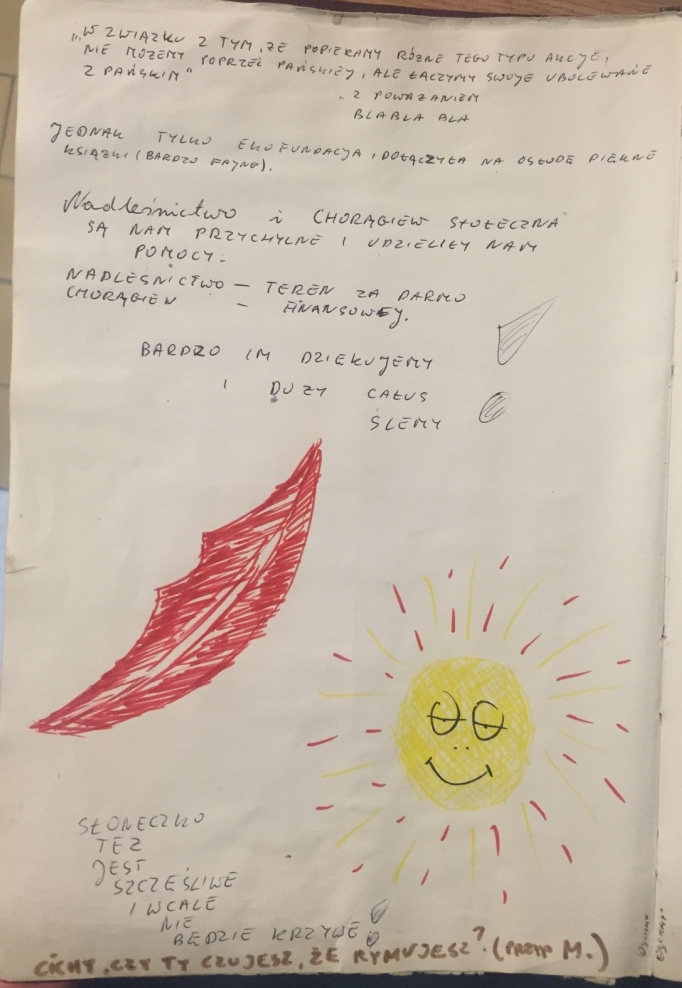 "W ZWIĄZKU Z TYM, ŻE POPIERAMY RÓŻNE TEGO TYPU AKCJE,
NIE MOŻEMY POPRZEĆ PAŃSKIEJ, ALE ŁĄCZYMY SWOJE UBOLEWANIE
Z PAŃSKIM"
"Z POWAŻANIEM
BLABLA BLA
JEDNAK TYLKO EKOFUNDACJA, DOŁĄCZYŁA NA OSŁODĘ PIĘKNE
KSIĄŻKI (BARDZO FAJNE).
Nadleśnictwo i CHORĄGIEW STOŁECZNA
SĄ NAM PRZYCHYLNE I UDZIELIŁY NAM
POMOCY:
NADLEŚNICTWO – TEREN ZA DARMO
CHORĄGIEW – FINANSOWEJ.
BARDZO IM DZIĘKUJEMY
I DUŻY CAŁUS
ŚLEMY !
SŁONECZKO
TEŻ
JEST
SZCZĘŚLIWE
I WCALE
NIE
BĘDZIE KRZYWE!
CICHY, CZY TY CZUJESZ, ŻE RYMUJESZ? (PRZYP M.)